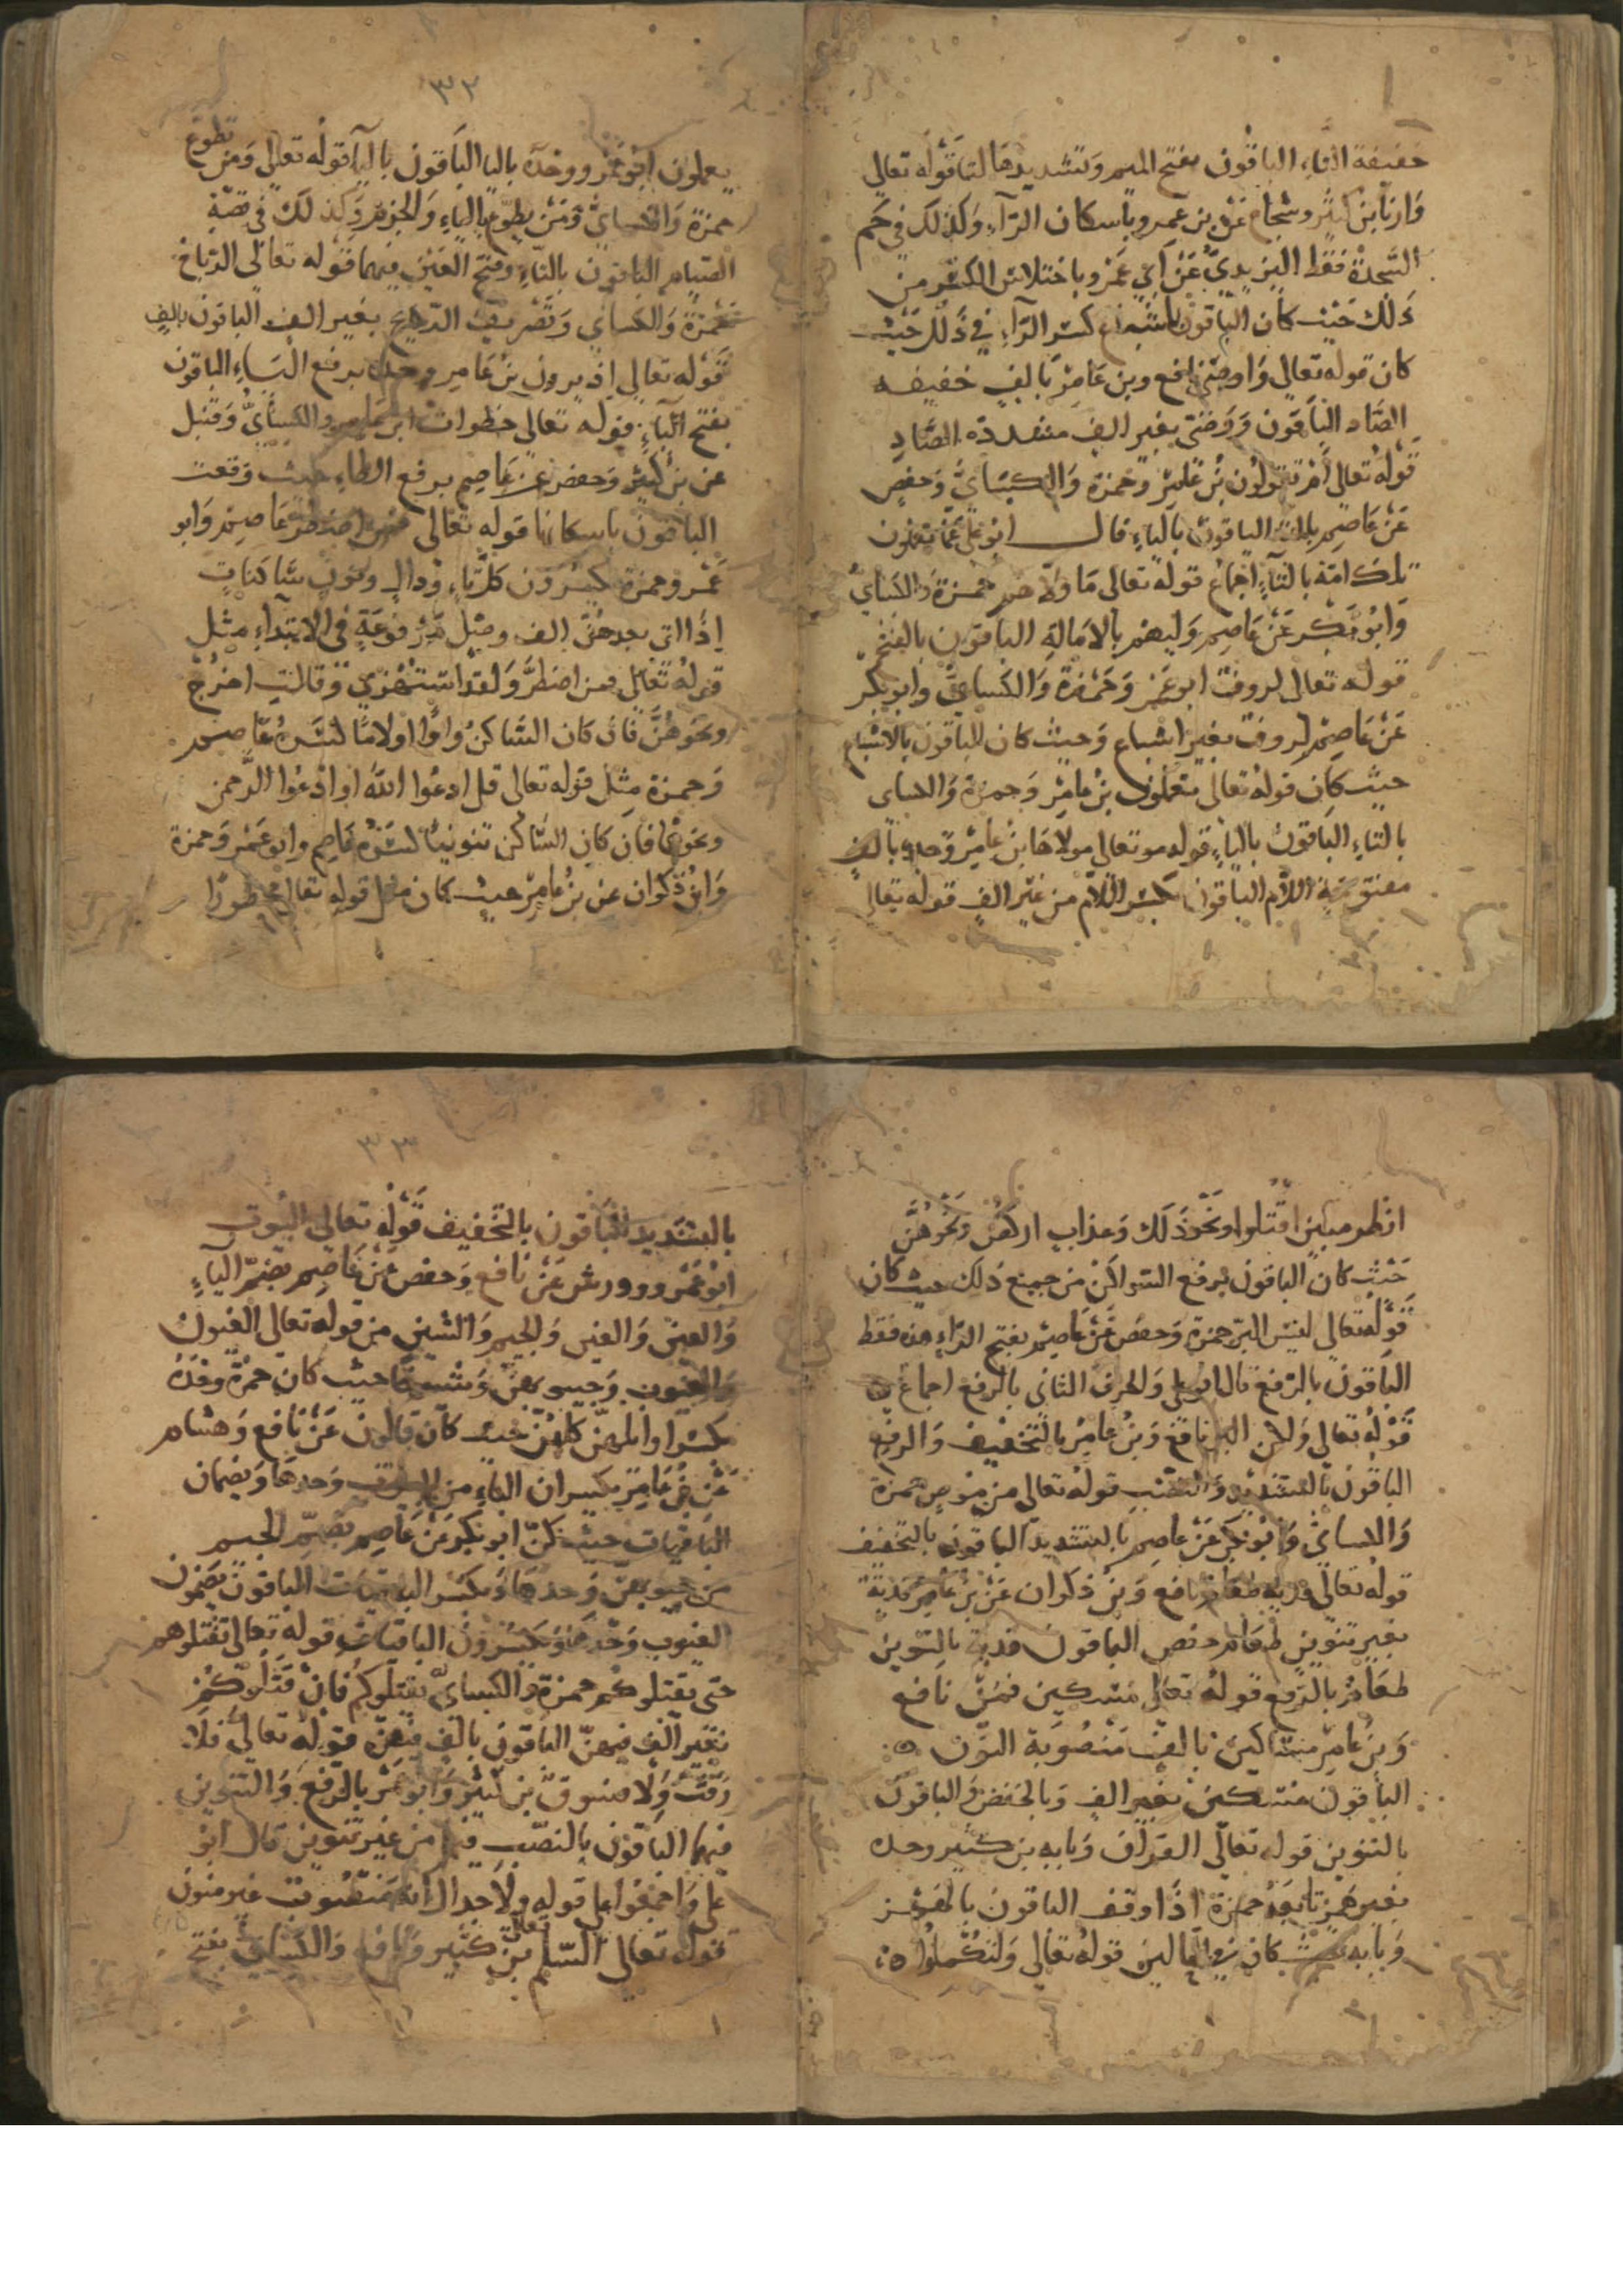 خفيفة التاء الباقون بفتح الميم وتشديدها التا قوله تعالى
وارنا بن كثير وشجاع عن بن عمرو باسكان الرآء وكذلك في حم
السجدة فقط اليزيديّ عن أبي عمرو باختلاس الكسر من
ذلك حيث كان الباقون باشباع كسر الرآء في ذلك حيث
كان قوله تعالى واوصى نافع وبن عامر بالف خفيفه
الصاد الباقون ووصّى بغير الف مشددة الصاد
قوله تعالى أم تقولون بن عامر وحمزة والكسائي وحفص
عن عاصم بالتاء الباقون بالياء قال ابو علي عما تعملون
تلك امّة بالتآء اجماع قوله تعالى ما ولّاهم حمزة والكسائي
وابو بكر عن عاصم وليهم بالامالة الباقون بالفتح
قوله تعالى لروف ابو عمرو وحمزة والكسائي وابو بكر
عن عاصم لروف بغير اشباع وحيث كان الباقون بالاشباع
حيث كان قوله تعالى يعملون بن عامر وحمزة والكسائي
بالتاء الباقون بالياء قوله هو تعالى مولاها بن عامر وحده بالف
مفتوحة اللام الباقون بكسر اللام من غير الف قوله تعالى
٣٢
يعملون ابو عمرو وحده باليا الباقون بالتآ قوله تعالى ومن تطوع
حمزة والكسائي ومن يطوّع بالياء والجزم وكذلك في قصة
الصيام الباقون بالتاء وفتح العين فيهما قوله تعالى الرياح
حمزة والكسائي وتصريف الريح بغير الف الباقون بالف
قوله تعالى إذ يرون بن عامر وحده برفع الياء الباقون
بفتح الياء قوله تعالى خطوات ابن عامر والكسائي وقنبل
عن بن كثير وحفص عن عاصم برفع الطاء حيث وقعت
الباقون باسكانها قوله تعالى فمن اضطر عاصم وابو
عمرو وحمزة يكسرون كل تاء ودال ونون ساكنات
إذا اتى بعدهنّ الف وصل مرفوعة في الابتداء مثل
قوله تعالى فمن اضطرّ ولقد استهزي وقالت اخرج
ونحوهنّ فان كان الساكن واوًا اولامًا كسره عاصم
وحمزة مثل قوله تعالى قل ادعوا الله او ادعوا الرحمن
ونحوها فان كان الساكن تنوينًا كسره عاصم وابو عمرو وحمزة
وابن ذكوان عن بن عامر حيث كان مثل قوله تعالى محظورًا
انظر مبين اقتلوا ونحو ذلك وعذاب اركض ونحوهنّ
حيث كان الباقون برفع السواكن من جميع ذلك حيث كان
قوله تعالى ليس البرّ حمزة وحفص عن عاصم بفتح الرآء هذه فقط
الباقون بالرفع والحرف الثاني بالرفع اجماع
قوله تعالى ولكن البر نافع وبن عامر بالتخفيف والرفع
الباقون بالتشديد والنصب قوله تعالى من موصٍ حمزة
والكسائي وابو بكر عن عاصم بالتشديد الباقون بالتخفيف
قوله تعالى فدية طعام نافع وبن ذكوان عن بن عامر فدية
بغير تنوين طعام خفض الباقون فدية بالتنوين
طعامُ بالرفع قوله تعالى مسكين فمن نافع
وبن عامر مساكين بالف منصوبة النون
الباقون مسكين بغير الف وبالخفض والباقون
بالتنوين قوله تعالى القرآن وبابه بن كثير وحده
بغير همز تابعه حمزة اذا وقف الباقون بالهمز
وبابه حيث كان في الحالين قوله تعالى ولتكملوا
٣٣
بالتشديد الباقون بالتخفيف قوله تعالى البيوت
ابو عمرو وورش عن نافع وحفص عن عاصم بضمّ البآء
والعين والغين والجيم والشين من قوله تعالى الغيوب
والعيون وجيوبهنّ وشيوخًا حيث كان حمزة وحده
يكسر اوائلهنّ كلهنّ حيث كان قالون عن نافع وهشام
عن بن عامر يكسران الباء من البيوت وحدها ويضمان
الباقيات حيث كنّ ابو بكر عن عاصم بضمّ الجيم
من جيوبهنّ وحدها ويكسر الباقيات الباقون يضمون
الغيوب وحدها ويكسرون الباقيات قوله تعالى تقتلوهم
حتى يقتلوكم حمزة والكسائي يقتلوكم فان قتلوكم
بغير الف فيهنّ الباقون بالف فيهنّ قوله تعالى فلا
رفث ولا فسوق بن كثير وابو عمرو بالرفع والتنوين
فيهما الباقون بالنصب فيهما من غير تنوين قال ابو
علي واجمعوا على قوله ولا جدال انه منصوب غير منون
قوله تعالى السلم بن كثير ونافع والكسائي بفتح